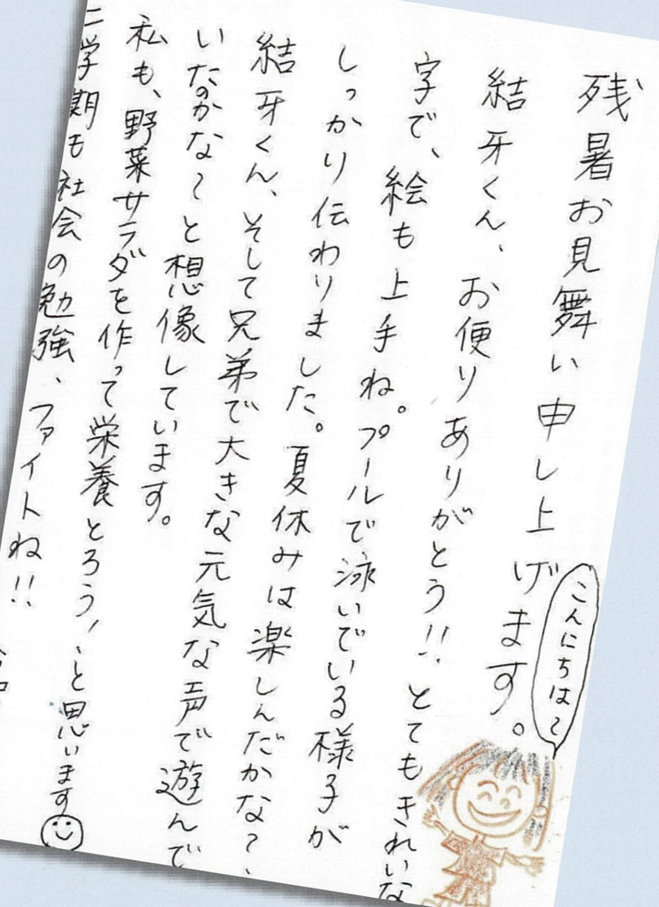 残暑お見舞い申し上げます。
こんにちは〜
結牙くん、お便りありがとう!!とてもきれいな
字で、絵も上手ね。プールで泳いでいる様子が
しっかり伝わりました。夏休みは楽しんだかな?
結牙くん、そして兄弟で大きな元気な声で遊んで
いたのかな〜と想像しています。
私も、野菜サラダを作って栄養とろう!と思います
二学期も社会の勉強、ファイトね!!